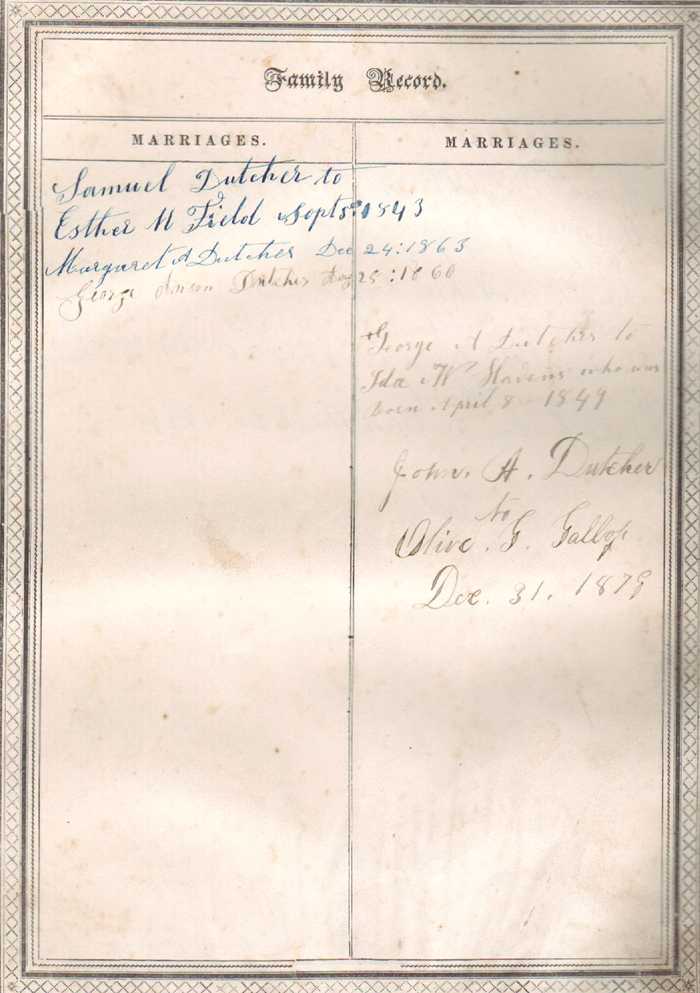 Family Record.
MARRIAGES.
Samuel Dutcher to
Esther M Field Sept 5th 1843
Margaret A Dutcher Dec 24: 1863
George Anson Dutcher Aug 25: 1868
MARRIAGES.
George A Dutcher to
Ida W Stevens who was
born April 8 1849
John. A. Dutcher
to
Olive. G. Gallop
Dec. 31. 1879